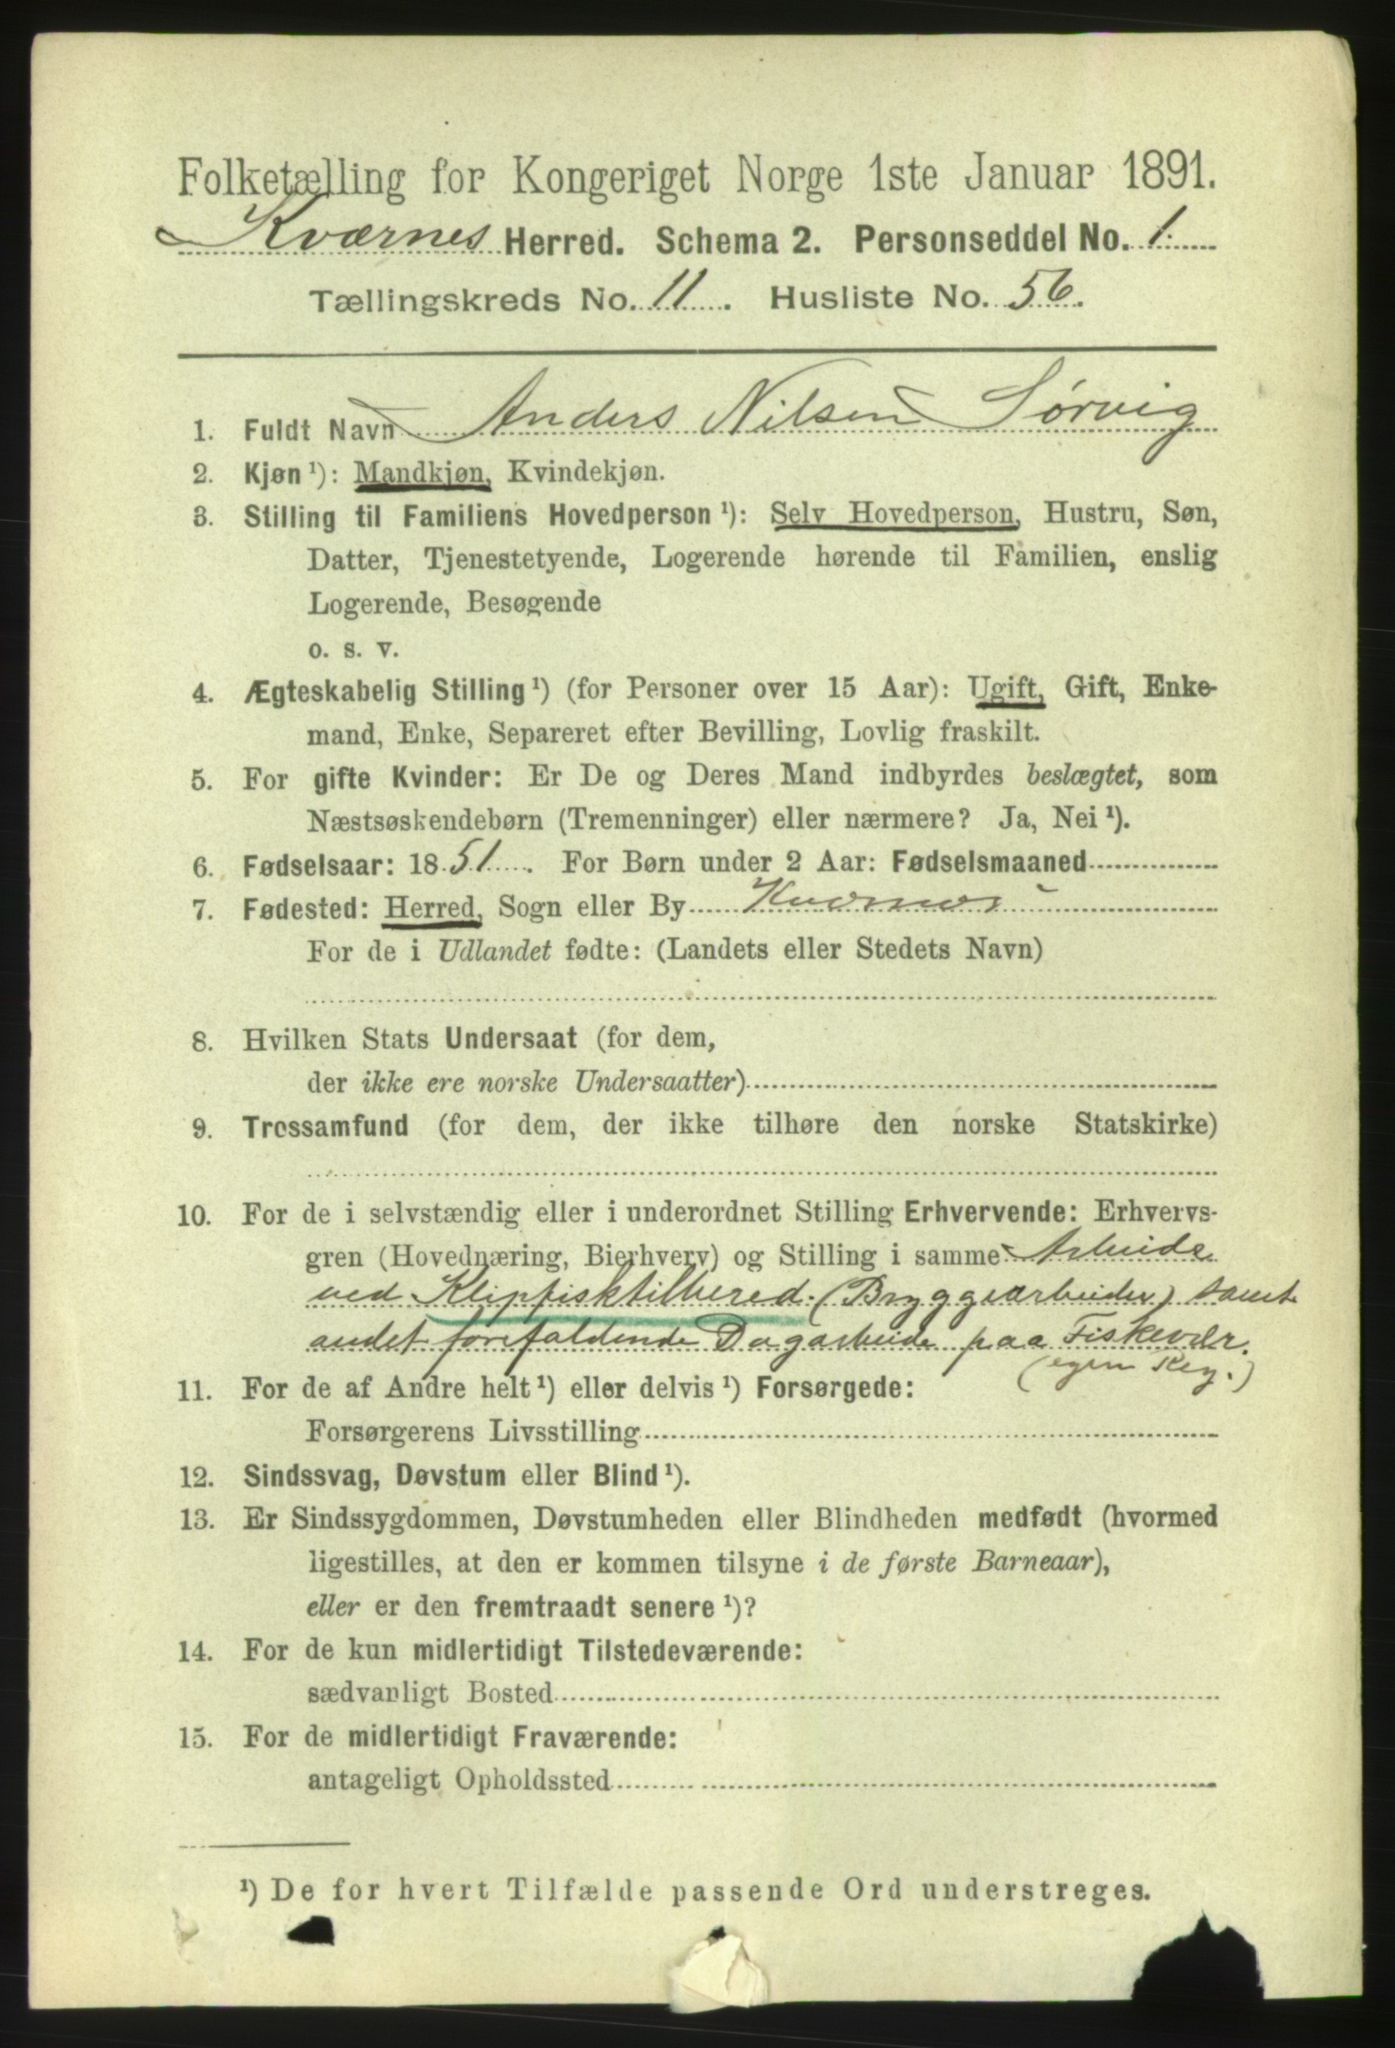 Folketælling for Kongeriget Norge 1ste Januar 1891.
Kværnes Herred. Schema 2. Personseddel No. 1.
Tællingskreds No. 11. Husliste No. 56.
1. Fuldt Navn Anders Nilsen Sørvig
2. Kjøn ¹): Mandkjøn, Kvindekjøn.
3. Stilling til Familiens Hovedperson ¹): Selv Hovedperson, Hustru, Søn,
Datter, Tjenestetyende, Logerende hørende til Familien, enslig
Logerende, Besøgende
o. s. v.
4. Ægteskabelig Stilling ¹) (for Personer over 15 Aar): Ugift, Gift, Enke-
mand, Enke, Separeret efter Bevilling, Lovlig fraskilt.
5. For gifte Kvinder: Er De og Deres Mand indbyrdes beslægtet, som
Næstsøskendebørn (Tremenninger) eller nærmere? Ja, Nei ¹).
6. Fødselsaar: 1851. For Børn under 2 Aar: Fødselsmaaned
7. Fødested: Herred, Sogn eller By Kværnes
For de i Udlandet fødte: (Landets eller Stedets Navn)
8. Hvilken Stats Undersaat (for dem,
der ikke ere norske Undersaatter)
9. Trossamfund (for dem, der ikke tilhøre den norske Statskirke)
10. For de i selvstændig eller i underordnet Stilling Erhvervende: Erhvervs-
gren (Hovednæring, Bierhverv) og Stilling i samme Arbeide
ved Klipfisktilbered. (Bryggearbeider) samt
andet forefaldende Dagarbeide paa Fiskevær.
(egen Reg.)
11. For de af Andre helt ¹) eller delvis ¹) Forsørgede:
Forsørgerens Livsstilling
12. Sindssvag, Døvstum eller Blind ¹).
13. Er Sindssygdommen, Døvstumheden eller Blindheden medfødt (hvormed
ligestilles, at den er kommen tilsyne i de første Barneaar),
eller er den fremtraadt senere ¹)?
14. For de kun midlertidigt Tilstedeværende:
sædvanligt Bosted
15. For de midlertidigt Fraværende:
antageligt Opholdssted
¹) De for hvert Tilfælde passende Ord understreges.